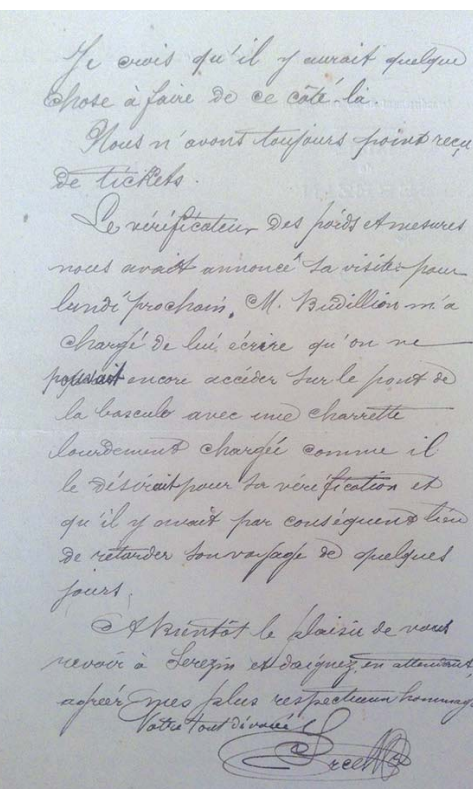 Je crois qu'il y aurait quelque
chose à faire de ce côté là.
Nous n'avons toujours point reçu
de tickets.
Le vérificateur des poids et mesures
nous avait annoncé sa visite pour
lundi prochain. M. Budillion m'a
chargé de lui écrire qu'on ne
pouvait encore accéder sur le pont de
la bascule avec une charrette
lourdement chargée comme il
le désirait pour sa vérification et
qu'il y avait par conséquent lieu
de retarder son voyage de quelques
jours.
A bientôt le plaisir de vous
revoir à Serezin et daignez, en attendant,
agréer mes plus respectueux hommages
Votre tout dévoué